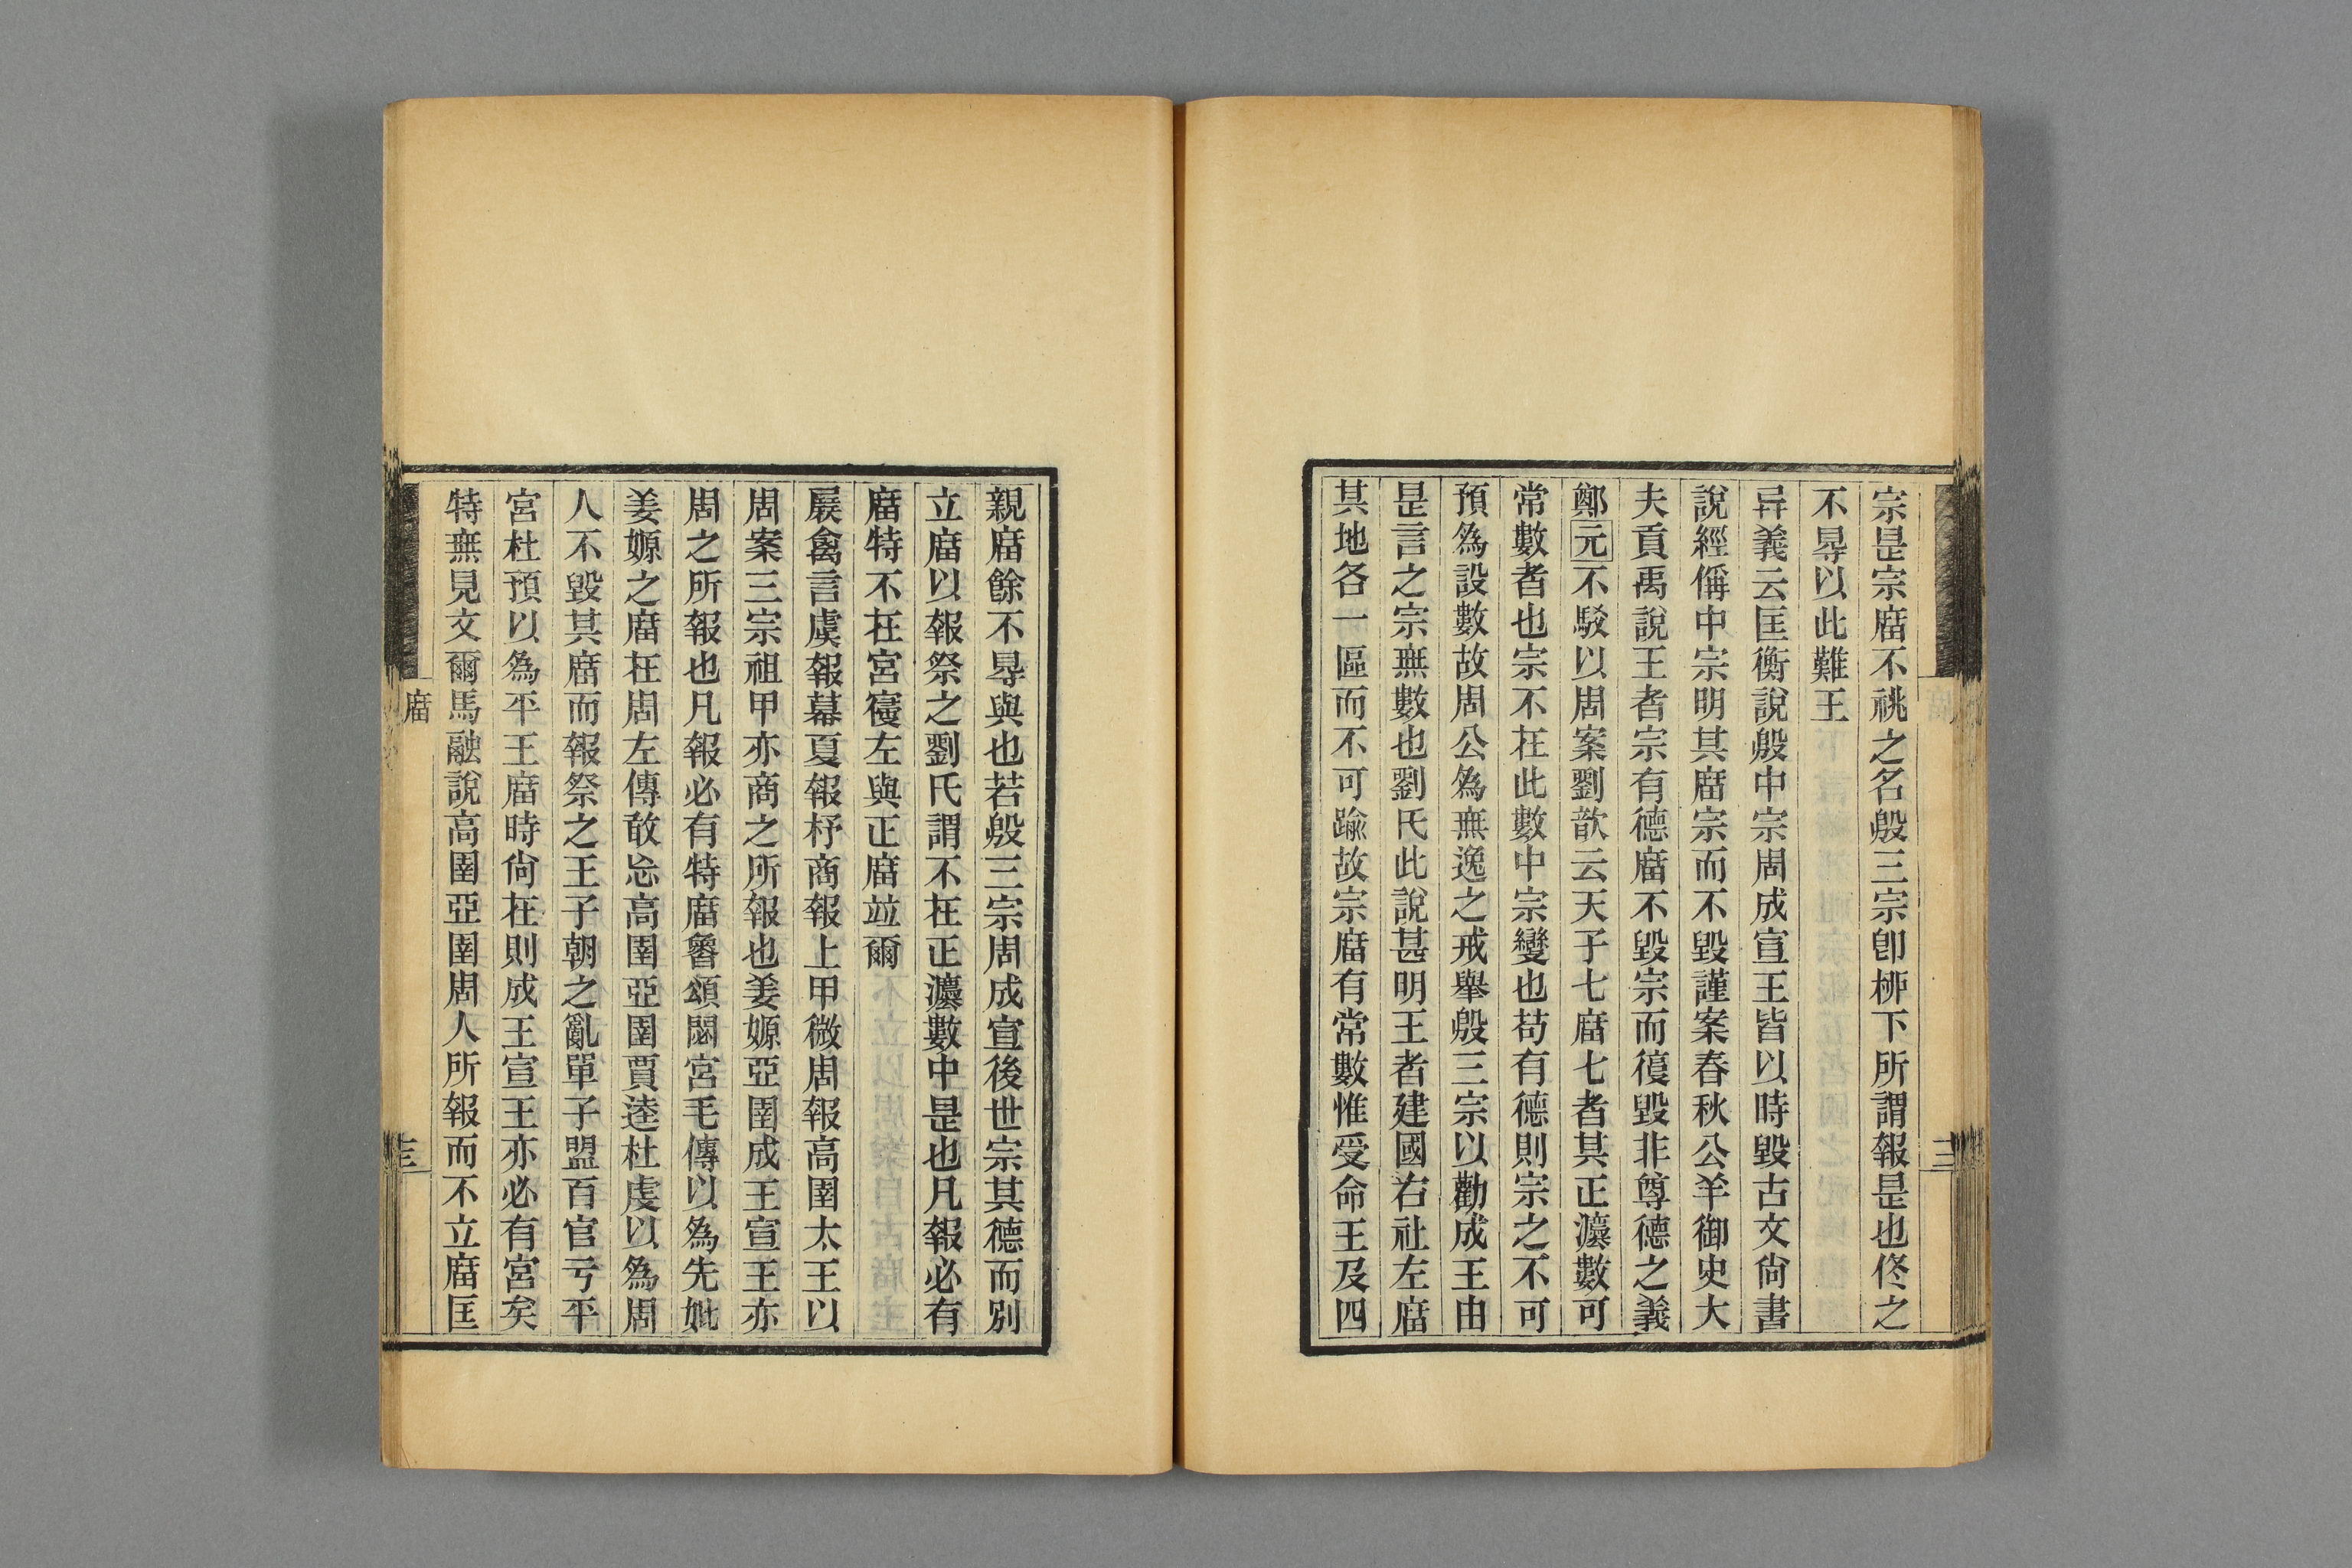 宗是宗庿不祧之名殷三宗卽桺下所謂報是也佟之
不䙷以此難王
异義云匡衡說殷中宗周成宣王皆以時毀古文尙書
說經偁中宗明其庿宗而不毀謹案春秋公羊御史大
夫貢禹說王者宗有德庿不毀宗而復毀非尊德之義
鄭元不駁以周案劉歆云天子七庿七者其正灋數可
常數者也宗不在此數中宗變也苟有德則宗之不可
預爲設數故周公爲無逸之戒舉殷三宗以勸成王由
是言之宗無數也劉氏此說甚明王者建國右社左庿
其地各一區而不可踰故宗庿有常數惟受命王及四
親庿餘不䙷與也若殷三宗周成宣後世宗其德而別
立庿以報祭之劉氏謂不在正灋數中是也凡報必有
庿特不在宮𡨦左與正庿竝爾
展禽言虞報幕夏報杼商報上甲微周報高圉太王以
周案三宗祖甲亦商之所報也姜嫄亞圉成王宣王亦
周之所報也凡報必有特庿魯頌閟宮毛傳以爲先妣
姜嫄之庿在周左傳敢忘高圉亞圉賈逵杜虔以爲周
人不毀其庿而報祭之王子朝之亂單子盟百官亏平
宮杜預以爲平王庿時尙在則成王宣王亦必有宮矣
特無見文爾馬融說高圉亞圉周人所報而不立庿匡
庿